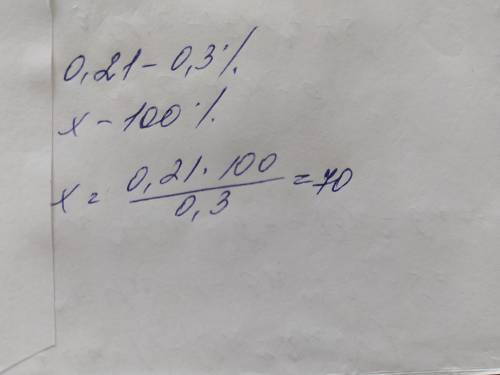 0,21 - 0,3%.
x - 100%.
x = \frac{0,21 \cdot 100}{0,3} = 70